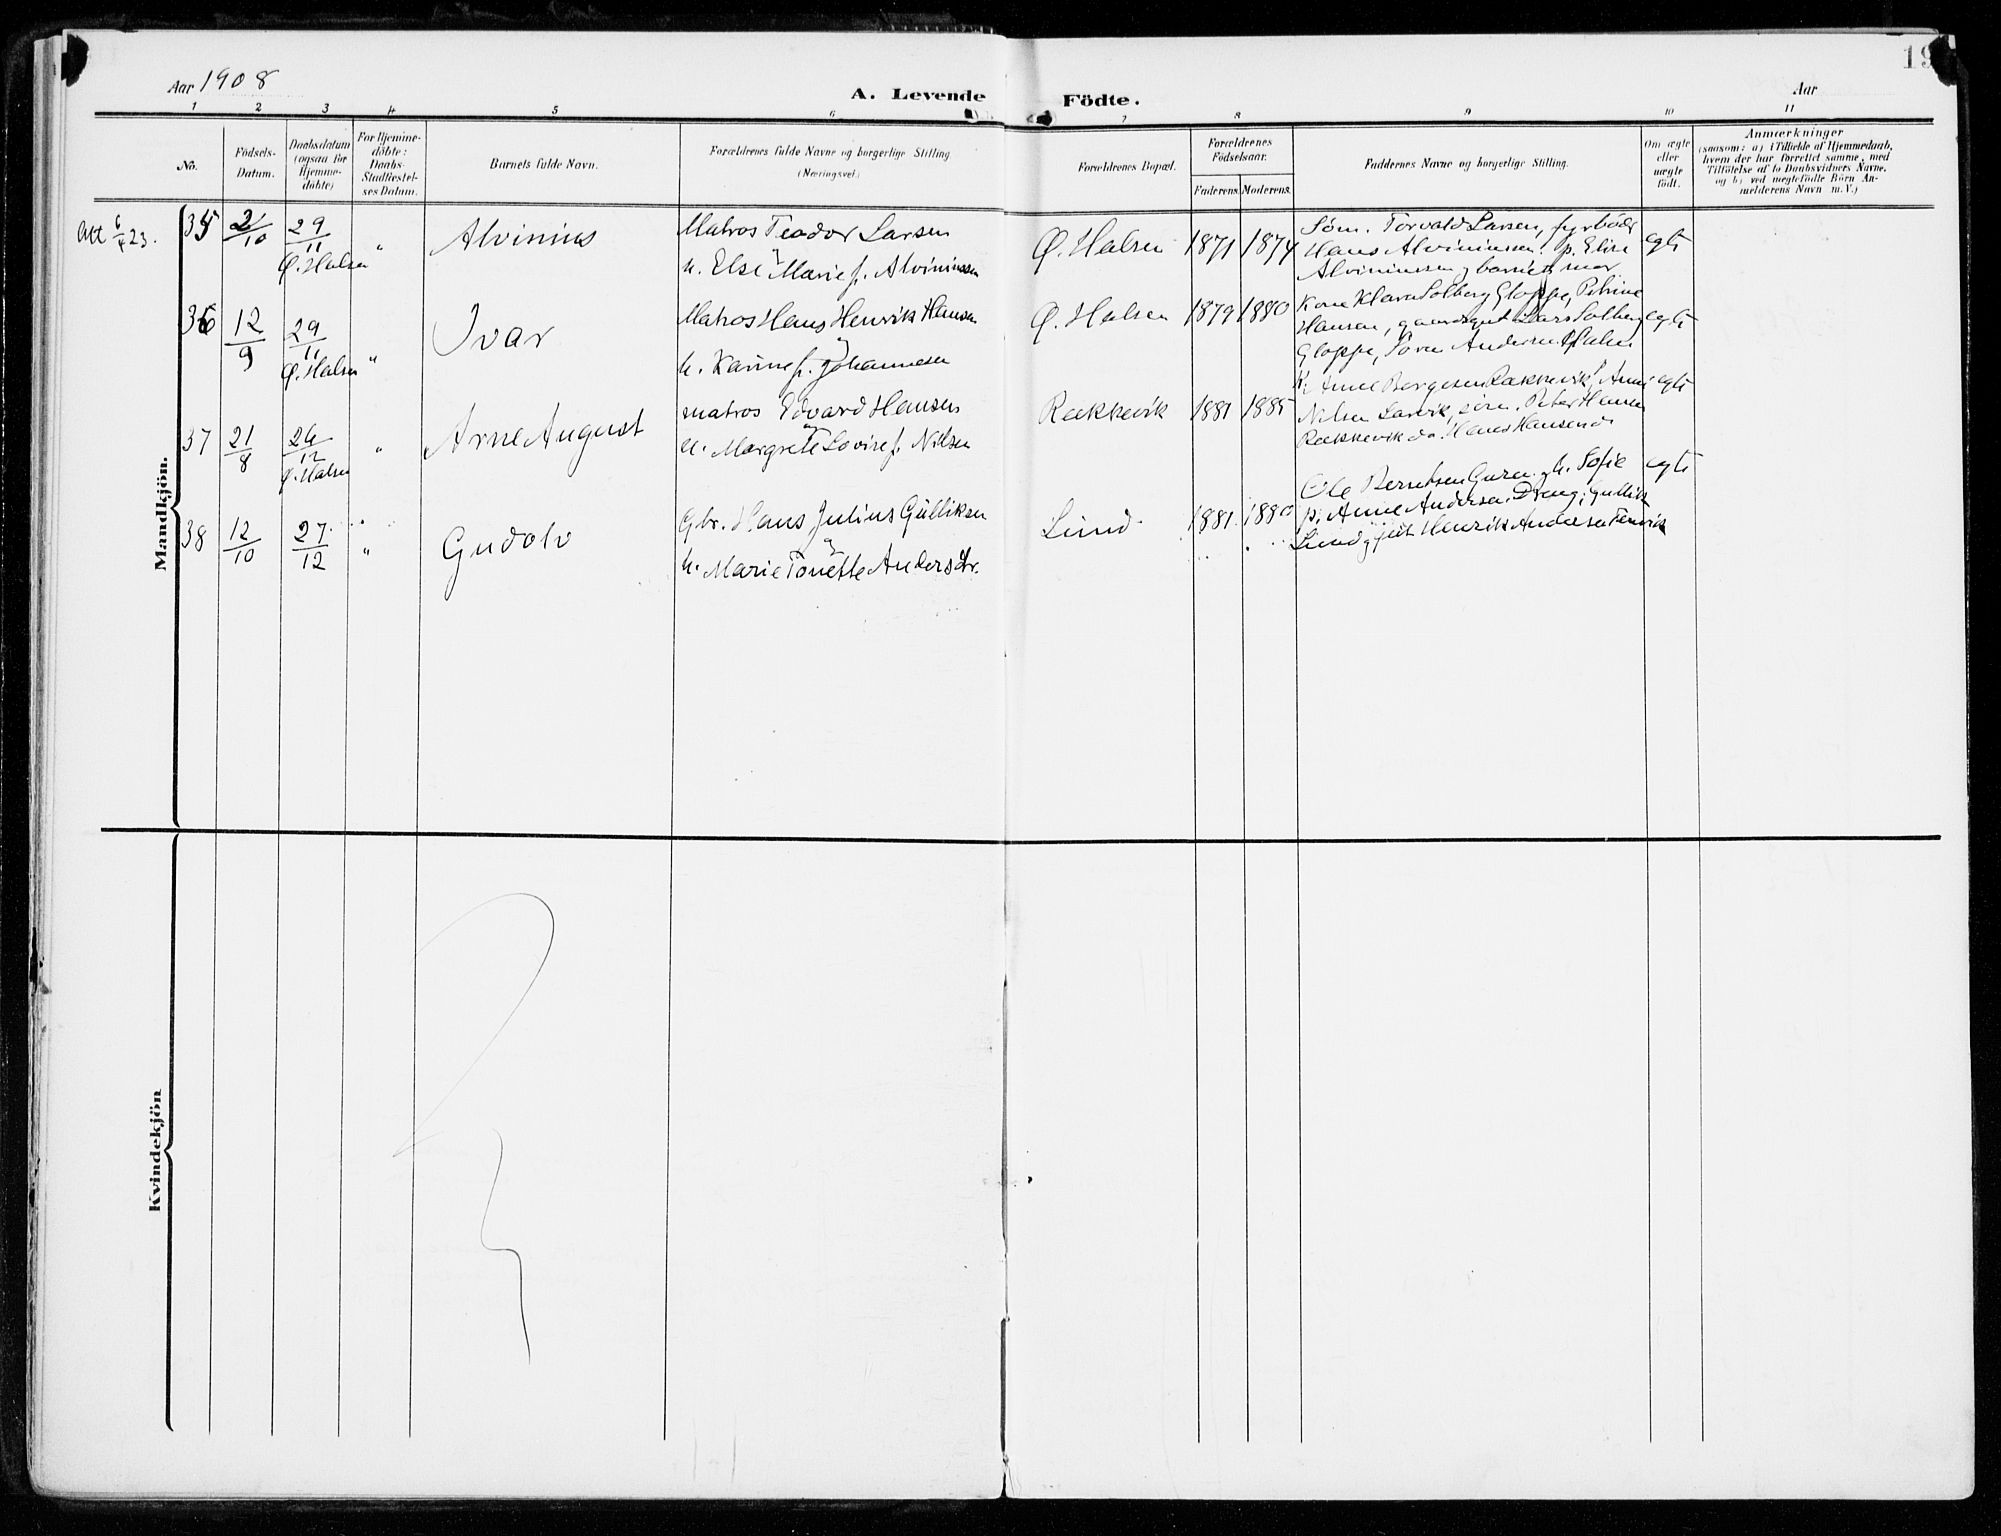 19
Aar 1908
A. Levende Födte.
Aar
1 2 3 4 5 6 7 8 9 10 11
No.
Födsels-
Datum.
Daabsdatum
(ogsaa for
Hjemme-
döbte)
For Hjemme-
döbte:
Daabs-
Stadfæstel-
ses Datum.
Barnets fulde Navn.
Forældrenes fulde Navne og borgerlige Stilling
(Næringsvei.)
Forældrenes Bopæl.
Forældrenes
Födselsaar.
Faderens. Moderens.
Faddernes Navne og borgerlige Stilling.
Om ægte
eller
uægte
födt.
Anmærkninger
(saasom: a) i Tilfælde af Hjemmedaab,
hvem der har forrettet samme, med
Tilföielse af to Daabsvidners Navne.
og b) ved uægtefödte Börn An-
melderens Navn m. V.)
Mandkjön.
Att 6/4 23.
35 2/10 29/11 Ø. Halsen " Alvinius
Matros Teodor Larsen
h. Else Marie f. Alviniussen
Ø. Halsen 1871 1874
Søm. Torvald Larsen, fyrbøder
Hans Alviniussen. p. Elise
Alviniussen, barnets mor
egte
36 12/9 29/11 Ø. Halsen " Ivar
Matros Hans Henrik Hansen
h. Karine f. Johannesen
Ø. Halsen 1879 1880
Kone Klara Solberg Gloppe, Petrine
Hansen, gaardgut Lars Solberg
Gloppe, Søren Andersen Ø Halsen
egte
37 21/8 26/12 Ø. Halsen " Arne August
matros Edvard Hansen
h. Margrete Lovise f. Nilsen
Rækkevik 1881 1885
K. Anne Borgesen Rækkevik, Anni
Nilsen Larvik, søm. Peter Hansen
Rækkevik do. Hans Hansen do
egte
38 12/10 27/12 " Gudolv
Gbr. Hans Julius Gulliksen
h. Marie Tonette Andersdr.
Lund 1881 1880
Ole Berntsen Guren, h. Sofie
p. Anne Andersen. Dreng. Gullik
Lund, gut Henrik Andersen
egte
Kvindekjön